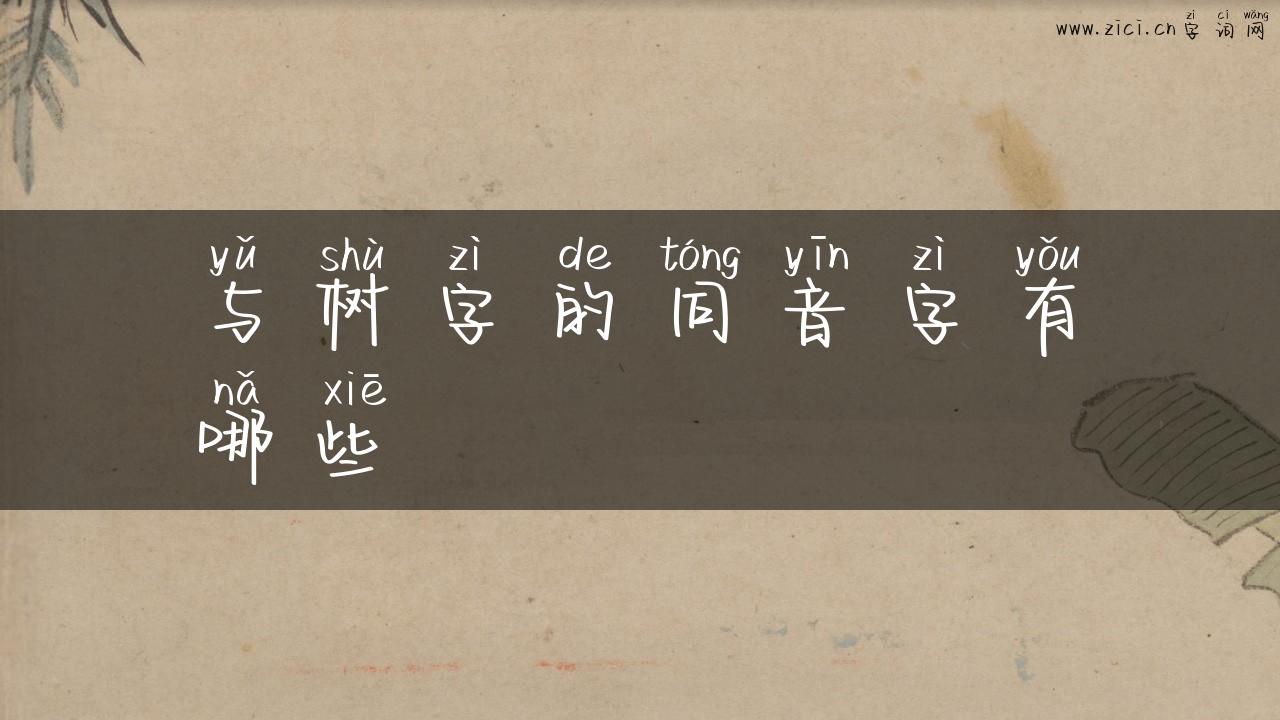 zì cí wǎng
www.zici.cn 字 词 网
yǔ shù zì de tóng yīn zì yǒu
与 树 字 的 同 音 字 有
nǎ xiē
哪 些